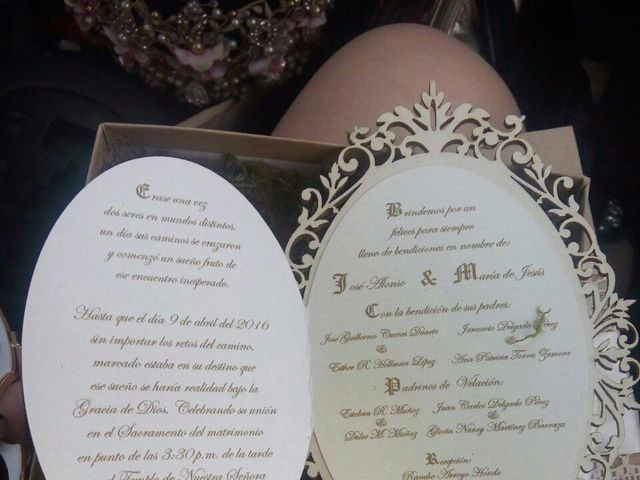 Erase una vez
dos seres en mundos distintos,
un día sus caminos se cruzaron
y comenzó un sueño fruto de
ese encuentro inesperado.
Hasta que el día 9 de abril del 2016
sin importar los retos del camino,
marcado estaba en su destino que
ese sueño se haría realidad bajo la
Gracia de Dios. Celebrando su unión
en el Sacramento del matrimonio
en punto de las 3:30 p.m. de la tarde
el Templo de Nuestra Señora
Brindemos por un
felices para siempre
lleno de bendiciones en nombre de:
José Alonso & María de Jesús
Con la bendición de sus padres:
José Guillermo Cuevas Duarte
&
Esther R. Hellman López
Januario Delgado Pérez
&
Ana Patricia Torres Zamora
Padrinos de Velación:
Esteban R. Muñoz
&
Dulce M. Muñoz
Juan Carlos Delgado Pérez
&
Gloria Nancy Martínez Barraza
Recepción:
Rancho Arroyo Hondo